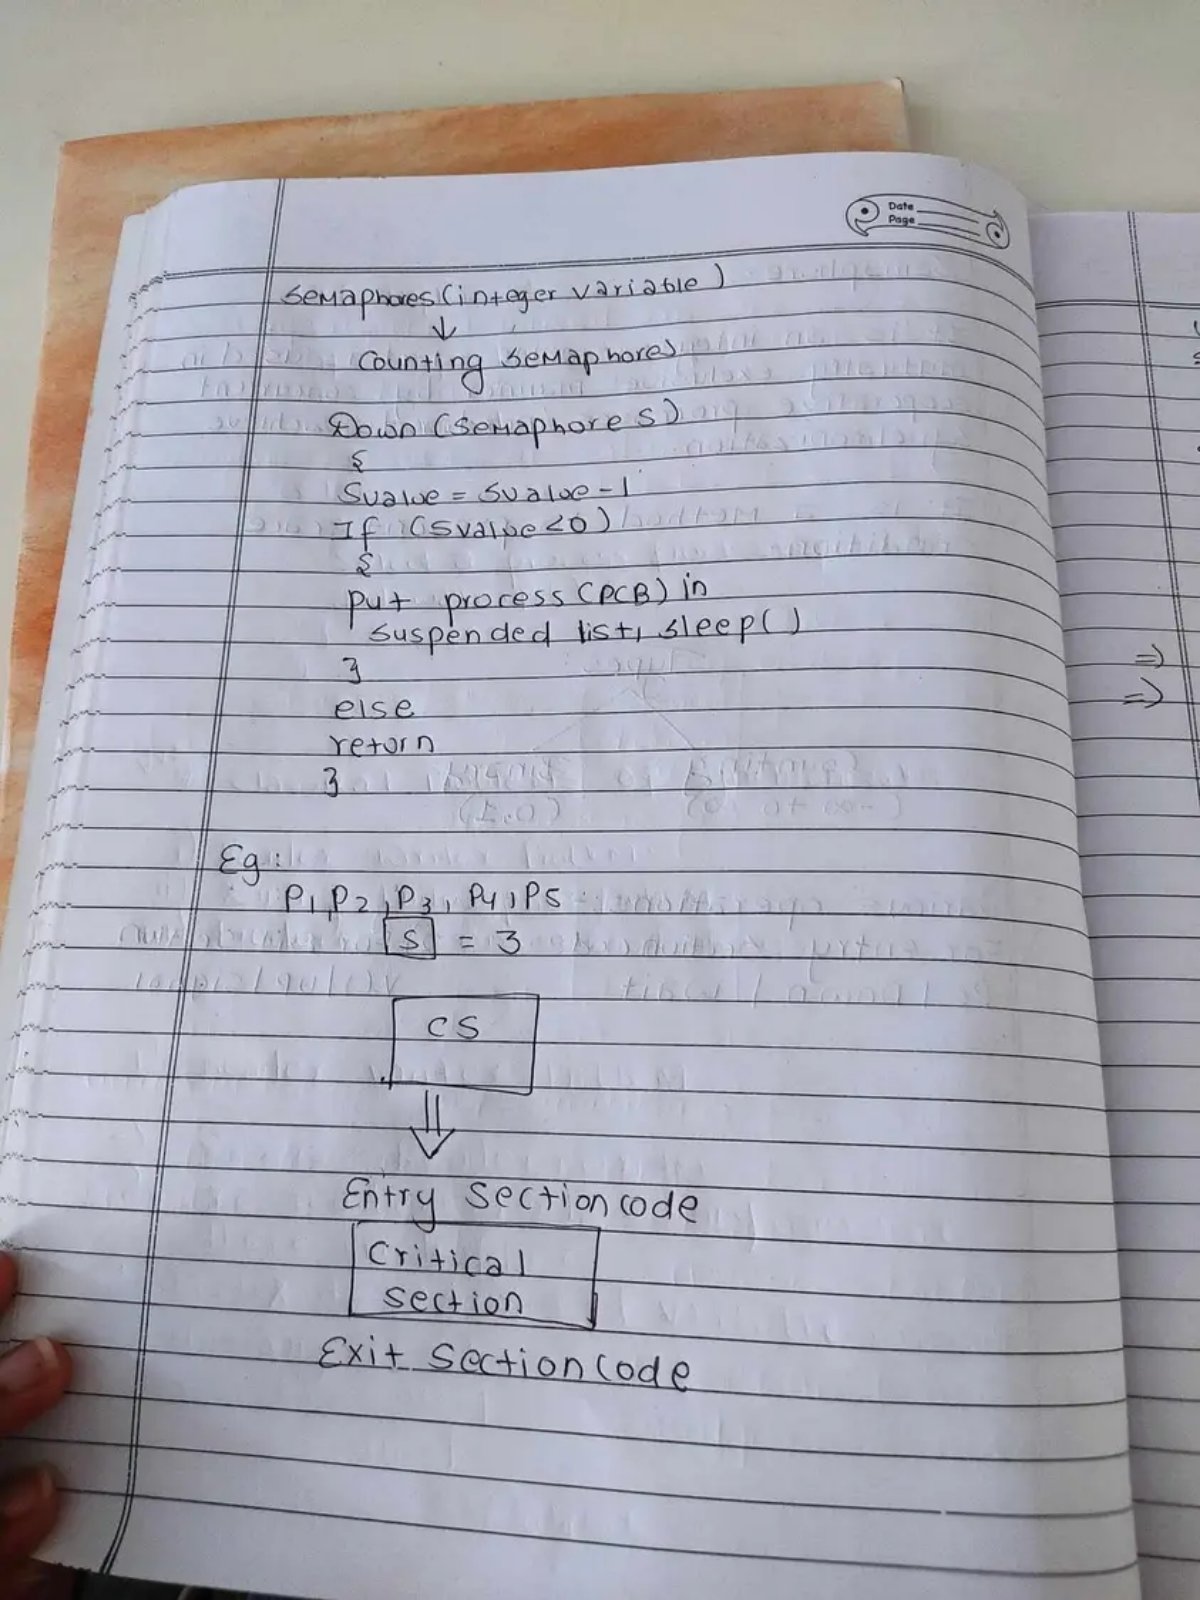 Date
Page
Semaphores (integer variable)
↓
Counting Semaphores
Down (Semaphore S)
{
Svalue = Svalue - 1
If (Svalue < 0)
{
Put process (PCB) in
suspended list, sleep()
}
else
return
}
Eg:
P1, P2, P3, P4, P5
S = 3
CS
⇓
Entry Section code
Critical
Section
Exit Section Code
⇒
⇒